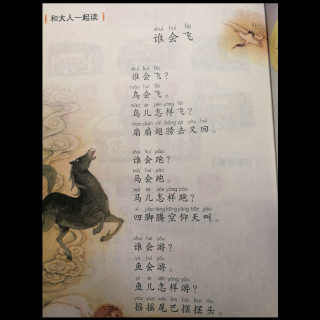 和大人一起读
shuí huì fēi
谁会飞
shuí huì fēi
谁会飞？
niǎo huì fēi
鸟会飞。
niǎo ér zěn yàng fēi
鸟儿怎样飞？
shān shān chì bǎng qù yòu huí
扇扇翅膀去又回。
shuí huì pǎo
谁会跑？
mǎ huì pǎo
马会跑。
mǎ ér zěn yàng pǎo
马儿怎样跑？
sì jiǎo téng kōng yǎng tiān jiào
四脚腾空仰天叫。
shuí huì yóu
谁会游？
yú huì yóu
鱼会游。
yú ér zěn yàng yóu
鱼儿怎样游？
yáo yáo wěi ba bǎi bǎi tóu
摇摇尾巴摆摆头。